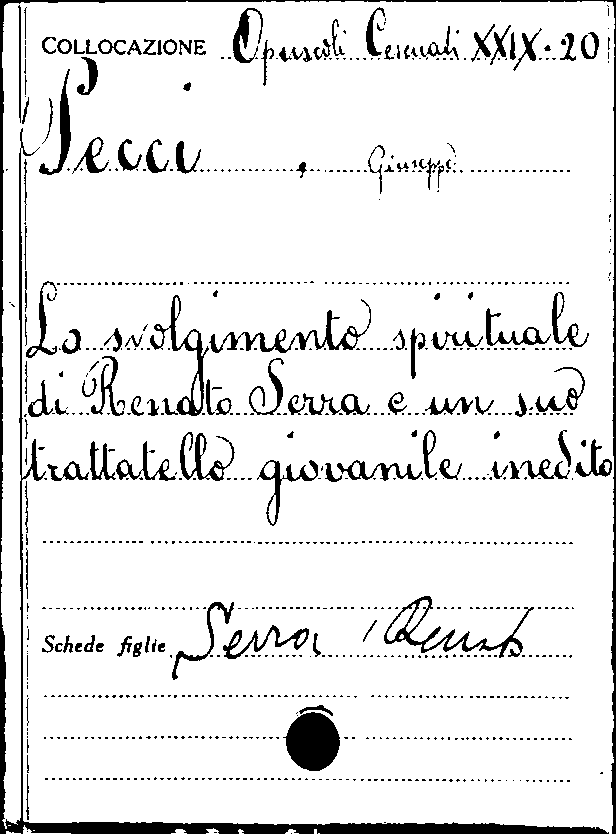 COLLOCAZIONE Opuscoli Cesenati XXIX-20
Pecci, Giuseppe
Lo svolgimento spirituale
di Renato Serra e un suo
trattatello giovanile inedito
Schede figlie Serra, Renato